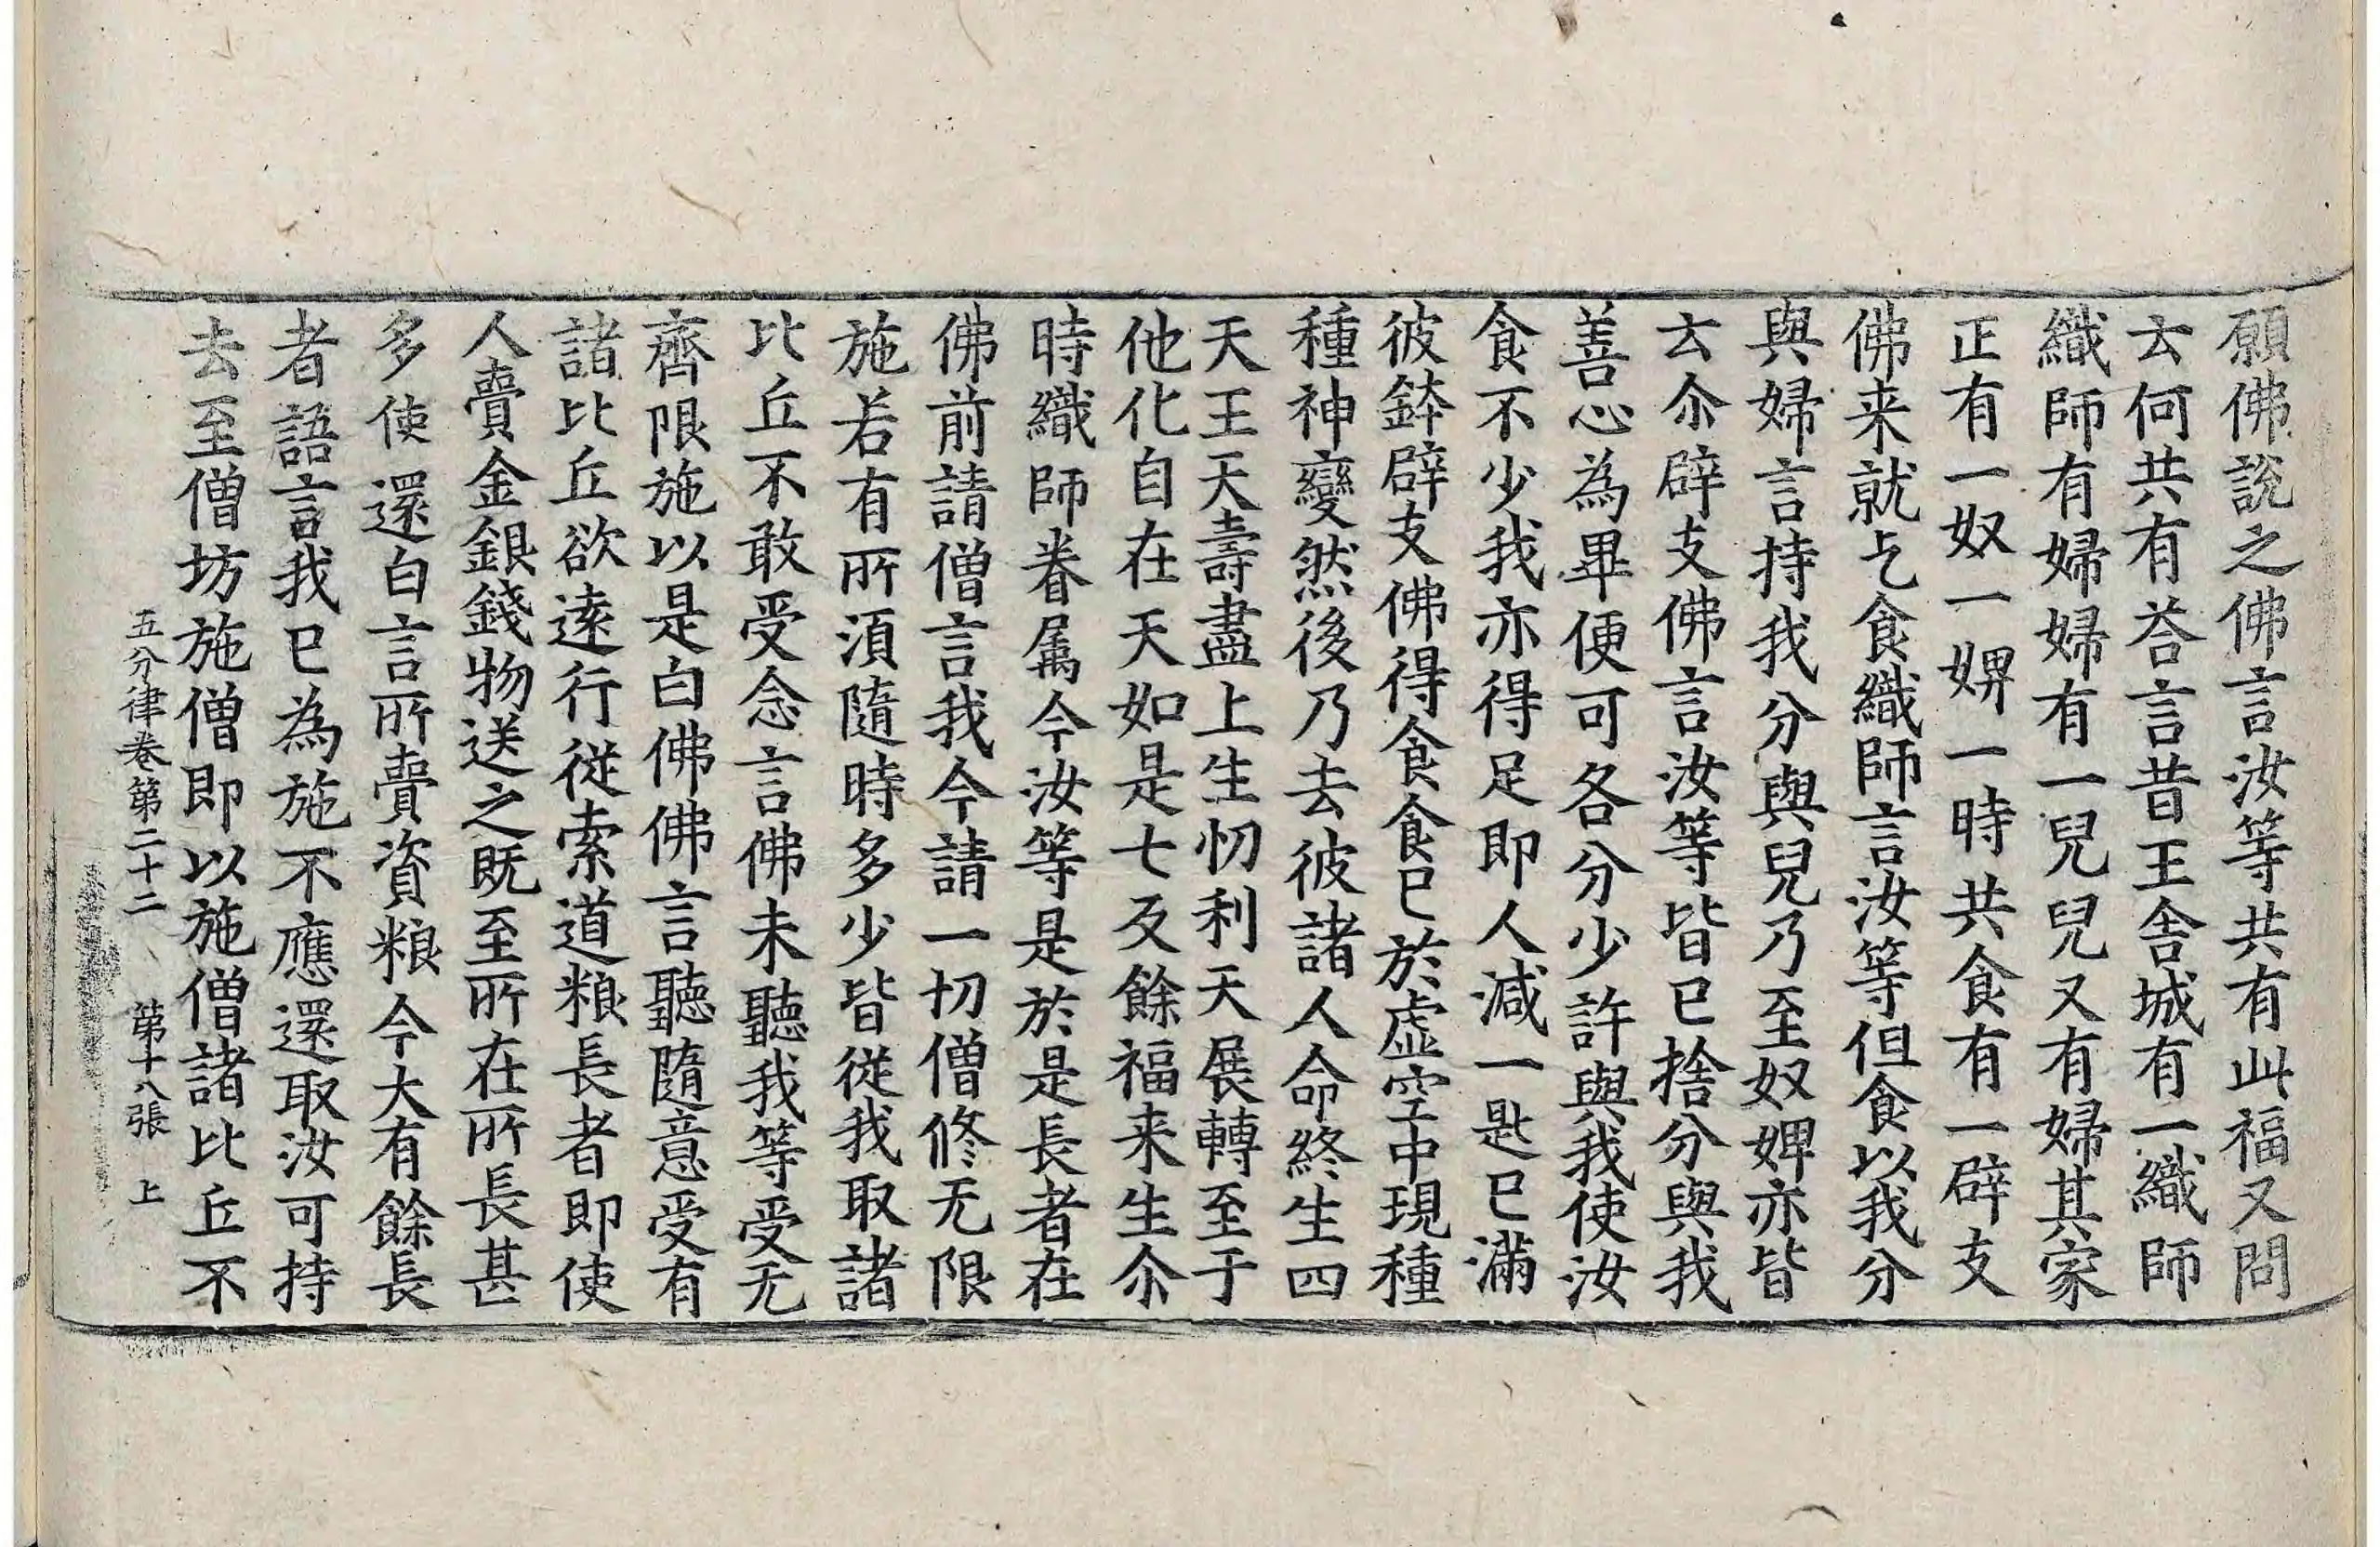 願佛說之佛言汝等共有此福又問
云何共有荅言昔王舍城有一織師
織師有婦婦有一兒兒又有婦其家
正有一奴一婢一時共食有一辟支
佛来就乞食織師言汝等但食以我分
與婦言持我分與兒乃至奴婢亦皆
云尒辟支佛言汝等皆已捨分與我
善心為畢便可各分少許與我使汝
食不少我亦得足即人減一匙已滿
彼鉢辟支佛得食食已於虛空中現種
種神變然後乃去彼諸人命終生四
天王天壽盡上生忉利天展轉至于
他化自在天如是七反餘福来生尒
時織師眷屬今汝等是於是長者在
佛前請僧言我今請一切僧修无限
施若有所須隨時多少皆從我取諸
比丘不敢受念言佛未聽我等受无
齊限施以是白佛佛言聽隨意受有
諸比丘欲遠行從索道粮長者即使
人賷金銀錢物送之既至所在所長甚
多使還白言所賷資粮今大有餘長
者語言我已為施不應還取汝可持
去至僧坊施僧即以施僧諸比丘不
五分律卷第二十二 第十八張 上